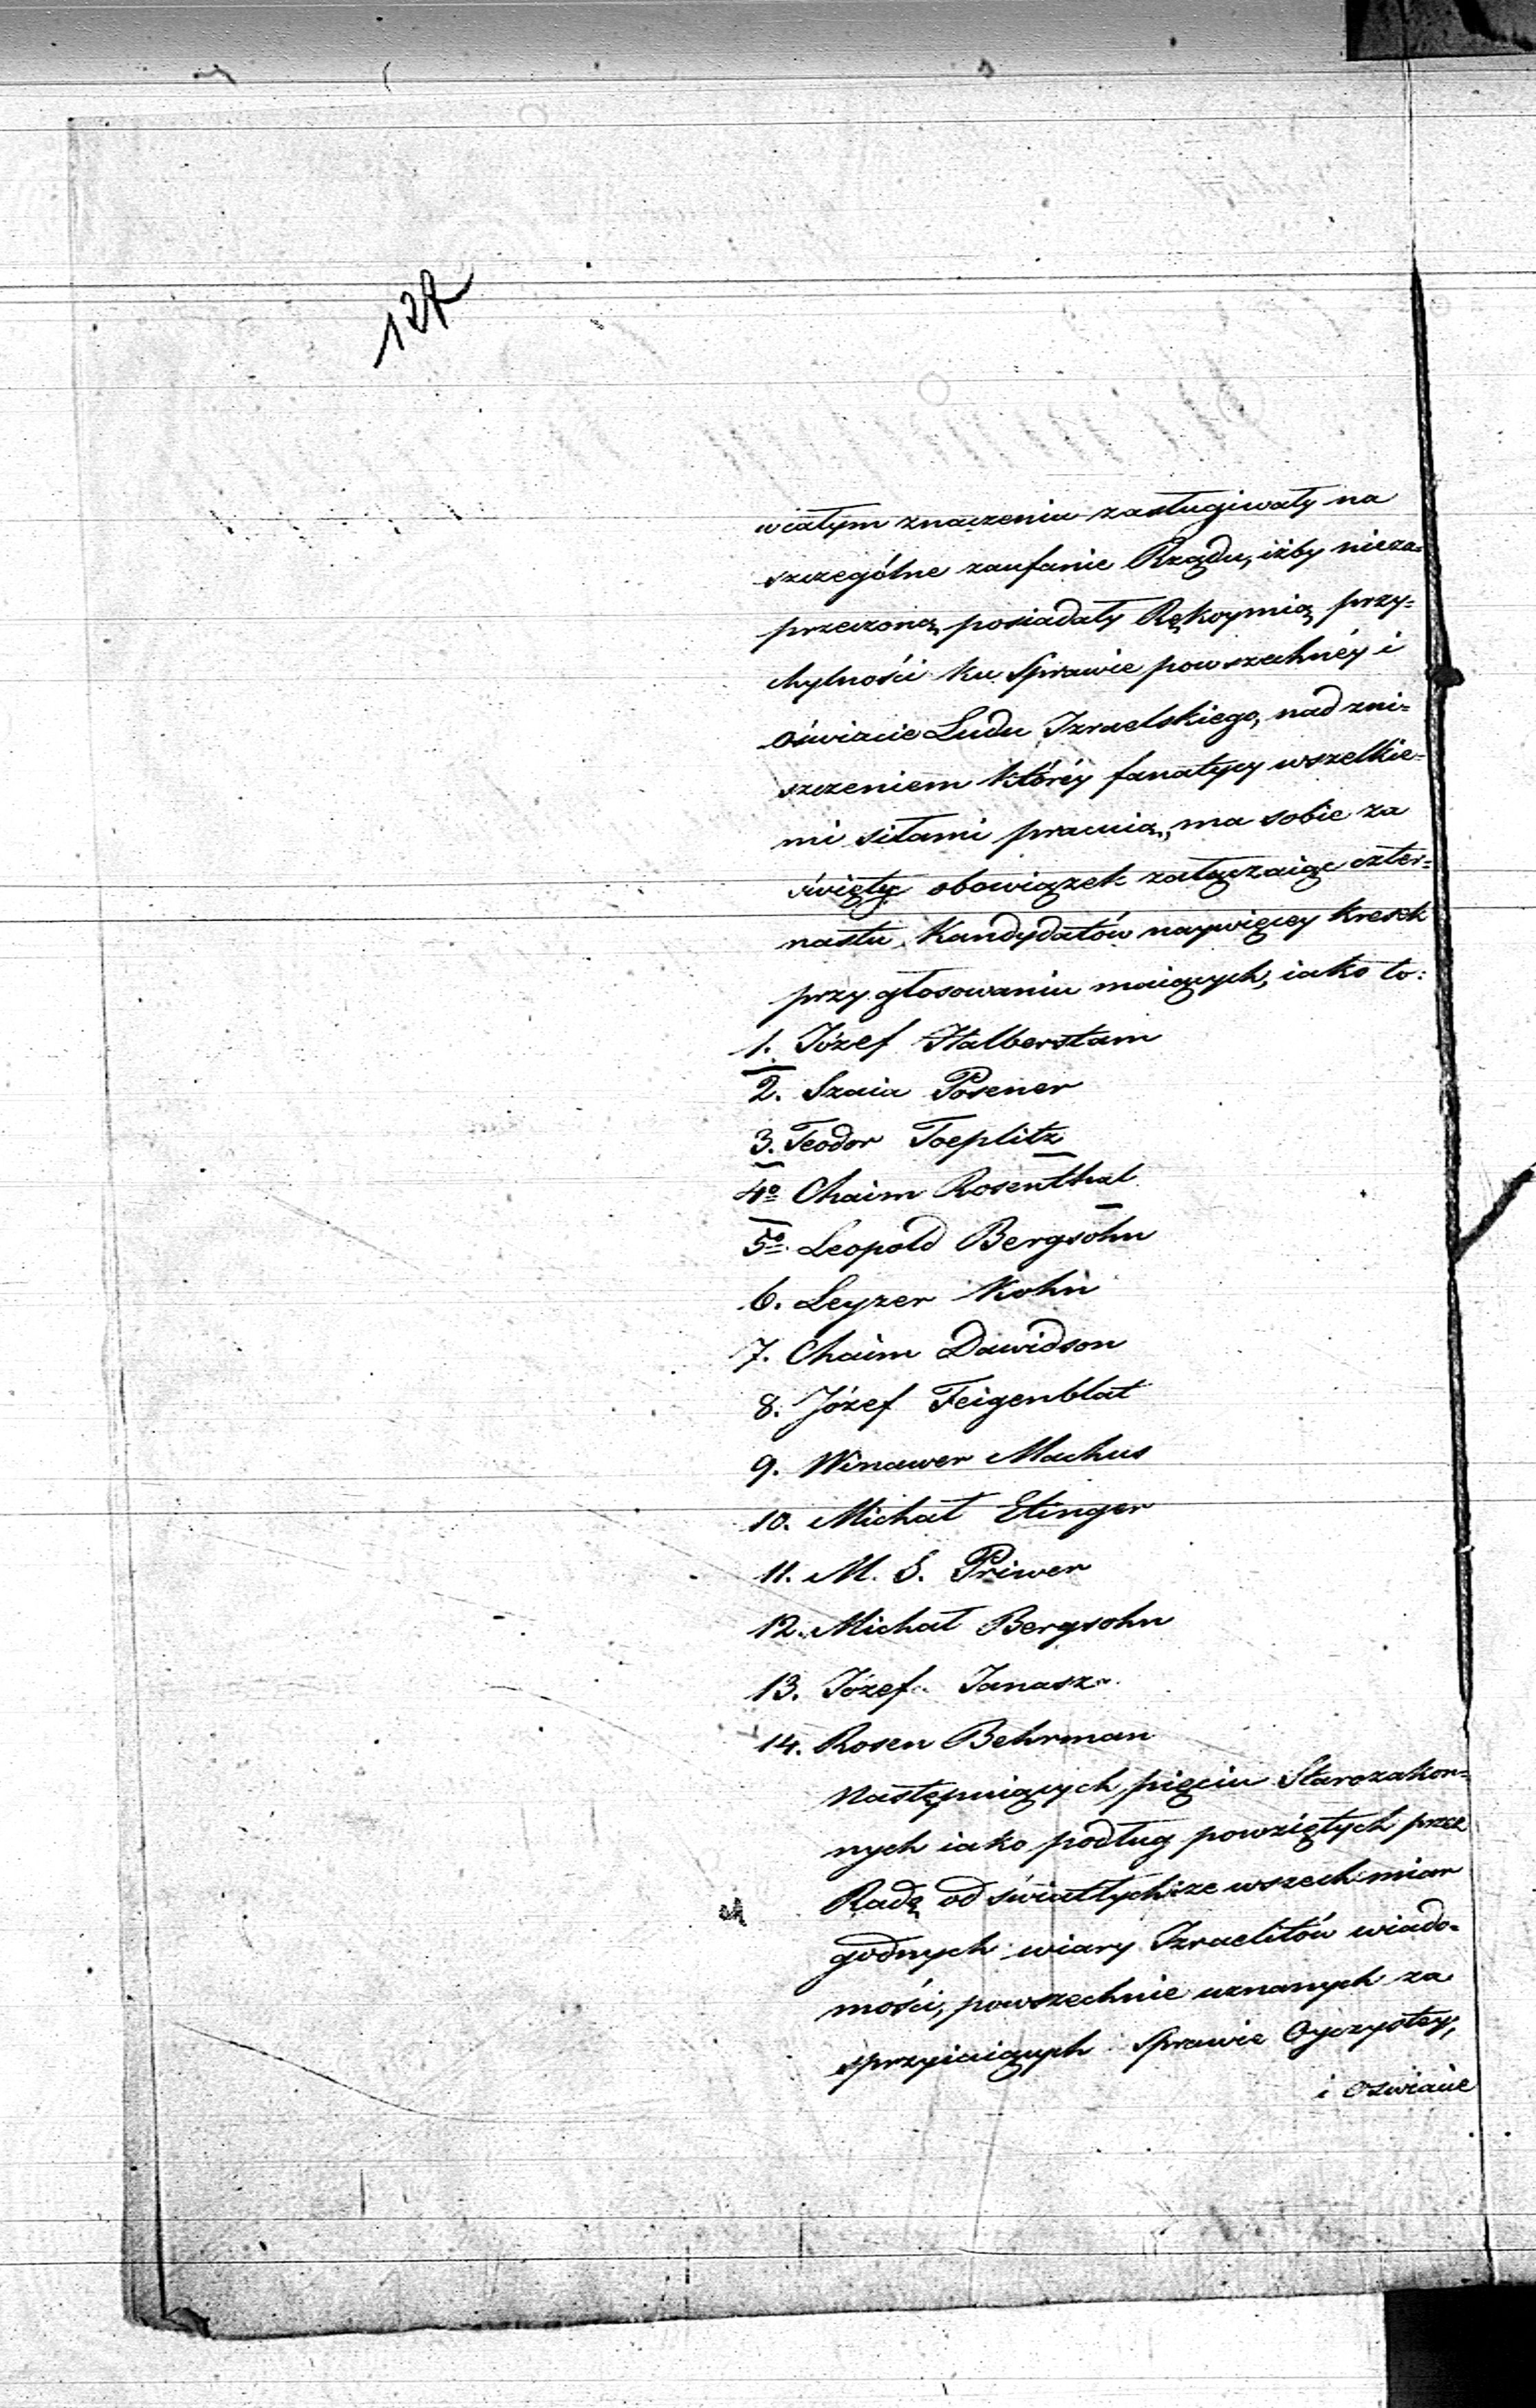 127
wiałym znaczeniu zasługiwały na
szczególne zaufanie Rządu, iżby nieza-
przeczoną posiadały Rękoymią przy-
chylności ku Sprawie powszechnéy i
Oświacie Ludu Izraelskiego, nad zni-
szczeniem któréy fanatycy wszelkie-
mi siłami pracuią, ma sobie za
święty obowiązek załączaiąc czter-
nastu Kandydatów naywięcey kresek
przy głosowaniu maiących, iako to:
1. Józef Halberstam
2. Szaia Posener
3. Teodor Toeplitz
4o Chaim Rosenthal
5o Leopold Bergsohn
6. Leyzer Kohn
7. Chaim Dawidson
8. Józef Feigenblat
9. Winawer Machus
10. Michał Etinger
11. M. S. Priwer
12. Michał Bergsohn
13. Józef Janasz
14. Rosen Behrman
Następuiących pięciu Starozakon-
nych iako podług powziętych przez
Radę od światłych i ze wszech miar
godnych wiary Izraelitów wiado-
mości, powszechnie uznanych za
sprzyiaiących Sprawie Oyczystey,
i Oświacie